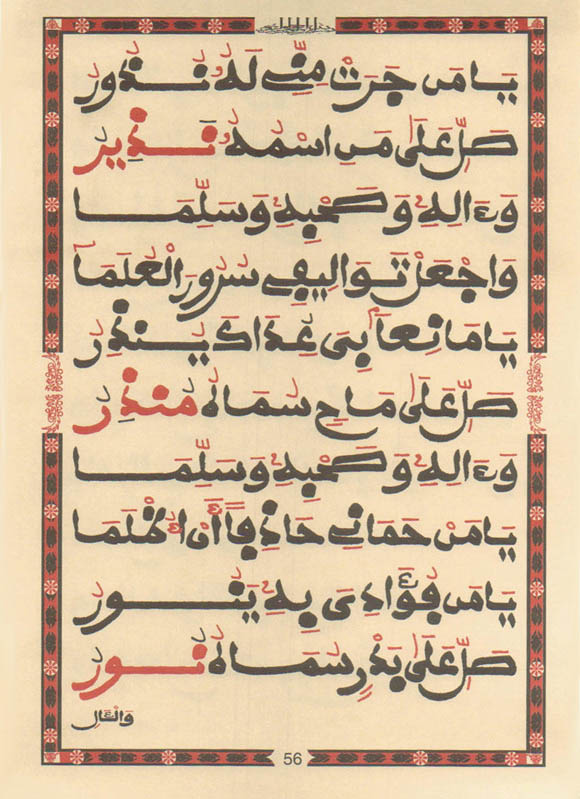 يَا مَن جَرَتْ مِنِّے لَهُ نُذُورُ
صَلِّ عَلَىٰ مَنِ اسْمُهُ نَذِيرُ
وَءَالِهِ وَصَحْبِهِ وَسَلِّمَا
وَاجْعَلْ تَوَالِيفِے سُرُورَ الْعُلَمَا
يَا مَانِعاً بِىَ عِدَاكَ يُنذِرُ
صَلِّ عَلَىٰ مَاحٍ سَمَاهُ مُنذِرُ
وَءَالِهِ وَصَحْبِهِ وَسَلِّمَا
يَا مَنْ حَمَانِے أَنْ أُظْلَمَا
يَا مَن فُؤَادِىَ بِهِ يَنُورُ
صَلِّ عَلَىٰ بَدْرٍ سَمَاهُ نُورُ
وَالْآلِ
56